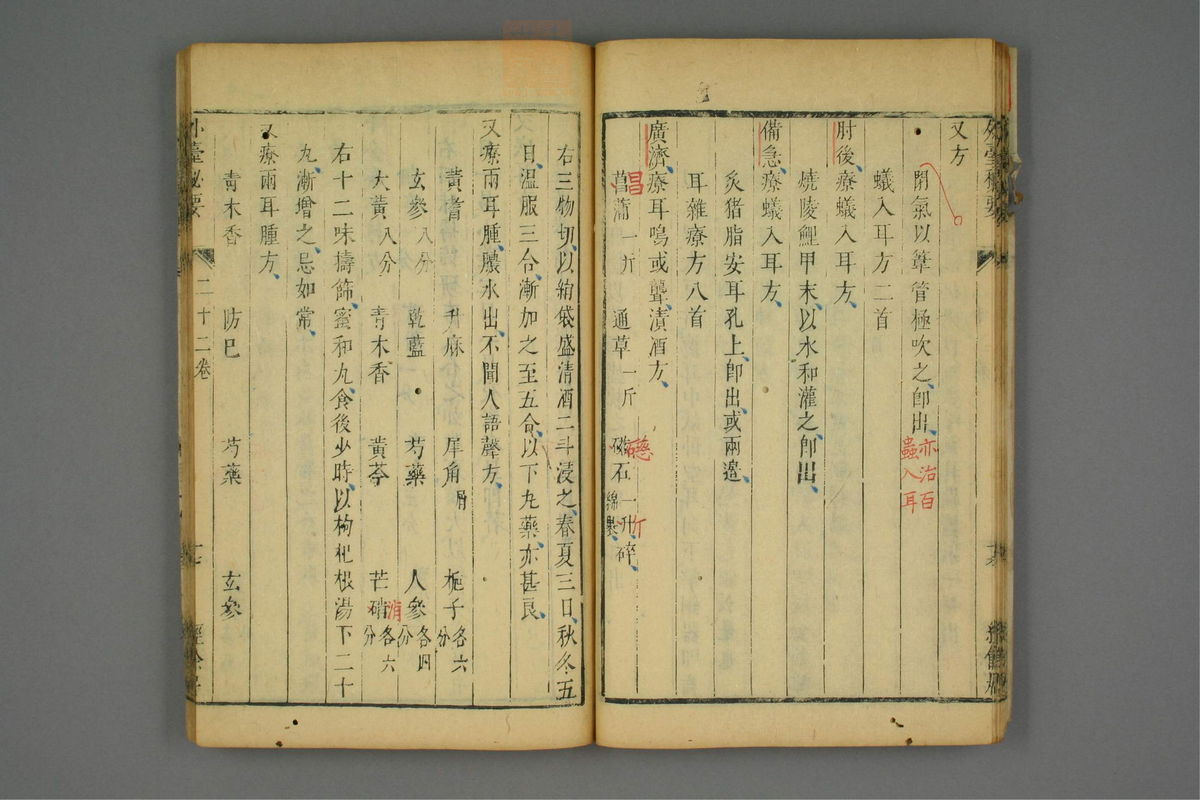 又方
閉氣以葦管極吹之即出
亦治百
蟲入耳
蟻入耳方二首
肘後療蟻入耳方
燒陵鯉甲末以水和灌之即出
備急療蟻入耳方
炙猪脂安耳孔上即出或兩邊
耳雜療方八首
廣濟療耳鳴或聾漬酒方
昌
菖蒲一斤 通草一斤 磁石一升碎綿裹
斤
右三物切以絹袋盛清酒二斗浸之春夏三日秋冬五
日溫服三合漸加之至五合以下丸藥亦甚良
又療兩耳腫膿水出不聞人語聲方
黃耆 升麻 犀角屑 梔子各六分
玄參八分 乾藍 芍藥 人參各四分
消
大黃八分 青木香 黃芩 芒硝各六分
右十二味擣篩蜜和丸食後少時以枸杞根湯下二十
丸漸增之忌如常
又療兩耳腫方
青木香 防巳 芍藥 玄參
外臺秘要 二十二卷